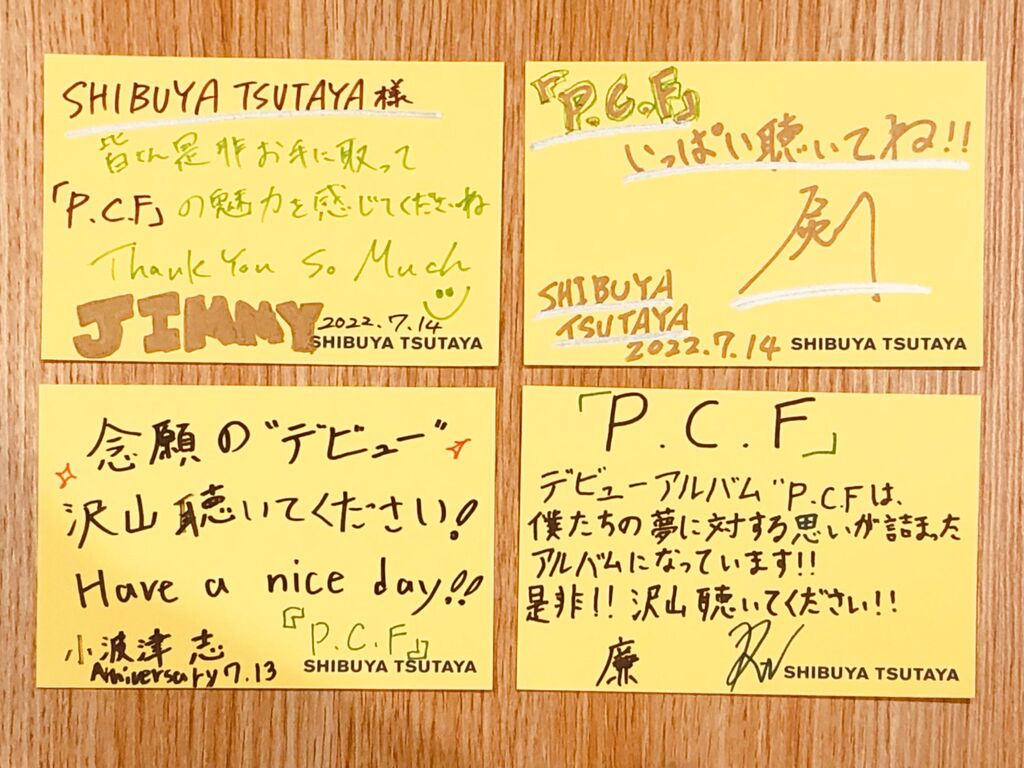 SHIBUYA TSUTAYA 様
皆さん是非お手に取って
「P.C.F」の魅力を感じてくださいね
Thank You So Much
JIMMY
2022.7.14
SHIBUYA TSUTAYA
『P.C.F』
いっぱい聴いてね!!
SHIBUYA
TSUTAYA
2022.7.14
SHIBUYA TSUTAYA
念願の"デビュー"
沢山聴いてください!
Have a nice day!!
『P.C.F』
小波津 志
Anniversary 7.13
SHIBUYA TSUTAYA
「P.C.F」
デビューアルバム"P.C.Fは、
僕たちの夢に対する思いが詰まった
アルバムになっています!!
是非!! 沢山聴いてください!!
廉
SHIBUYA TSUTAYA